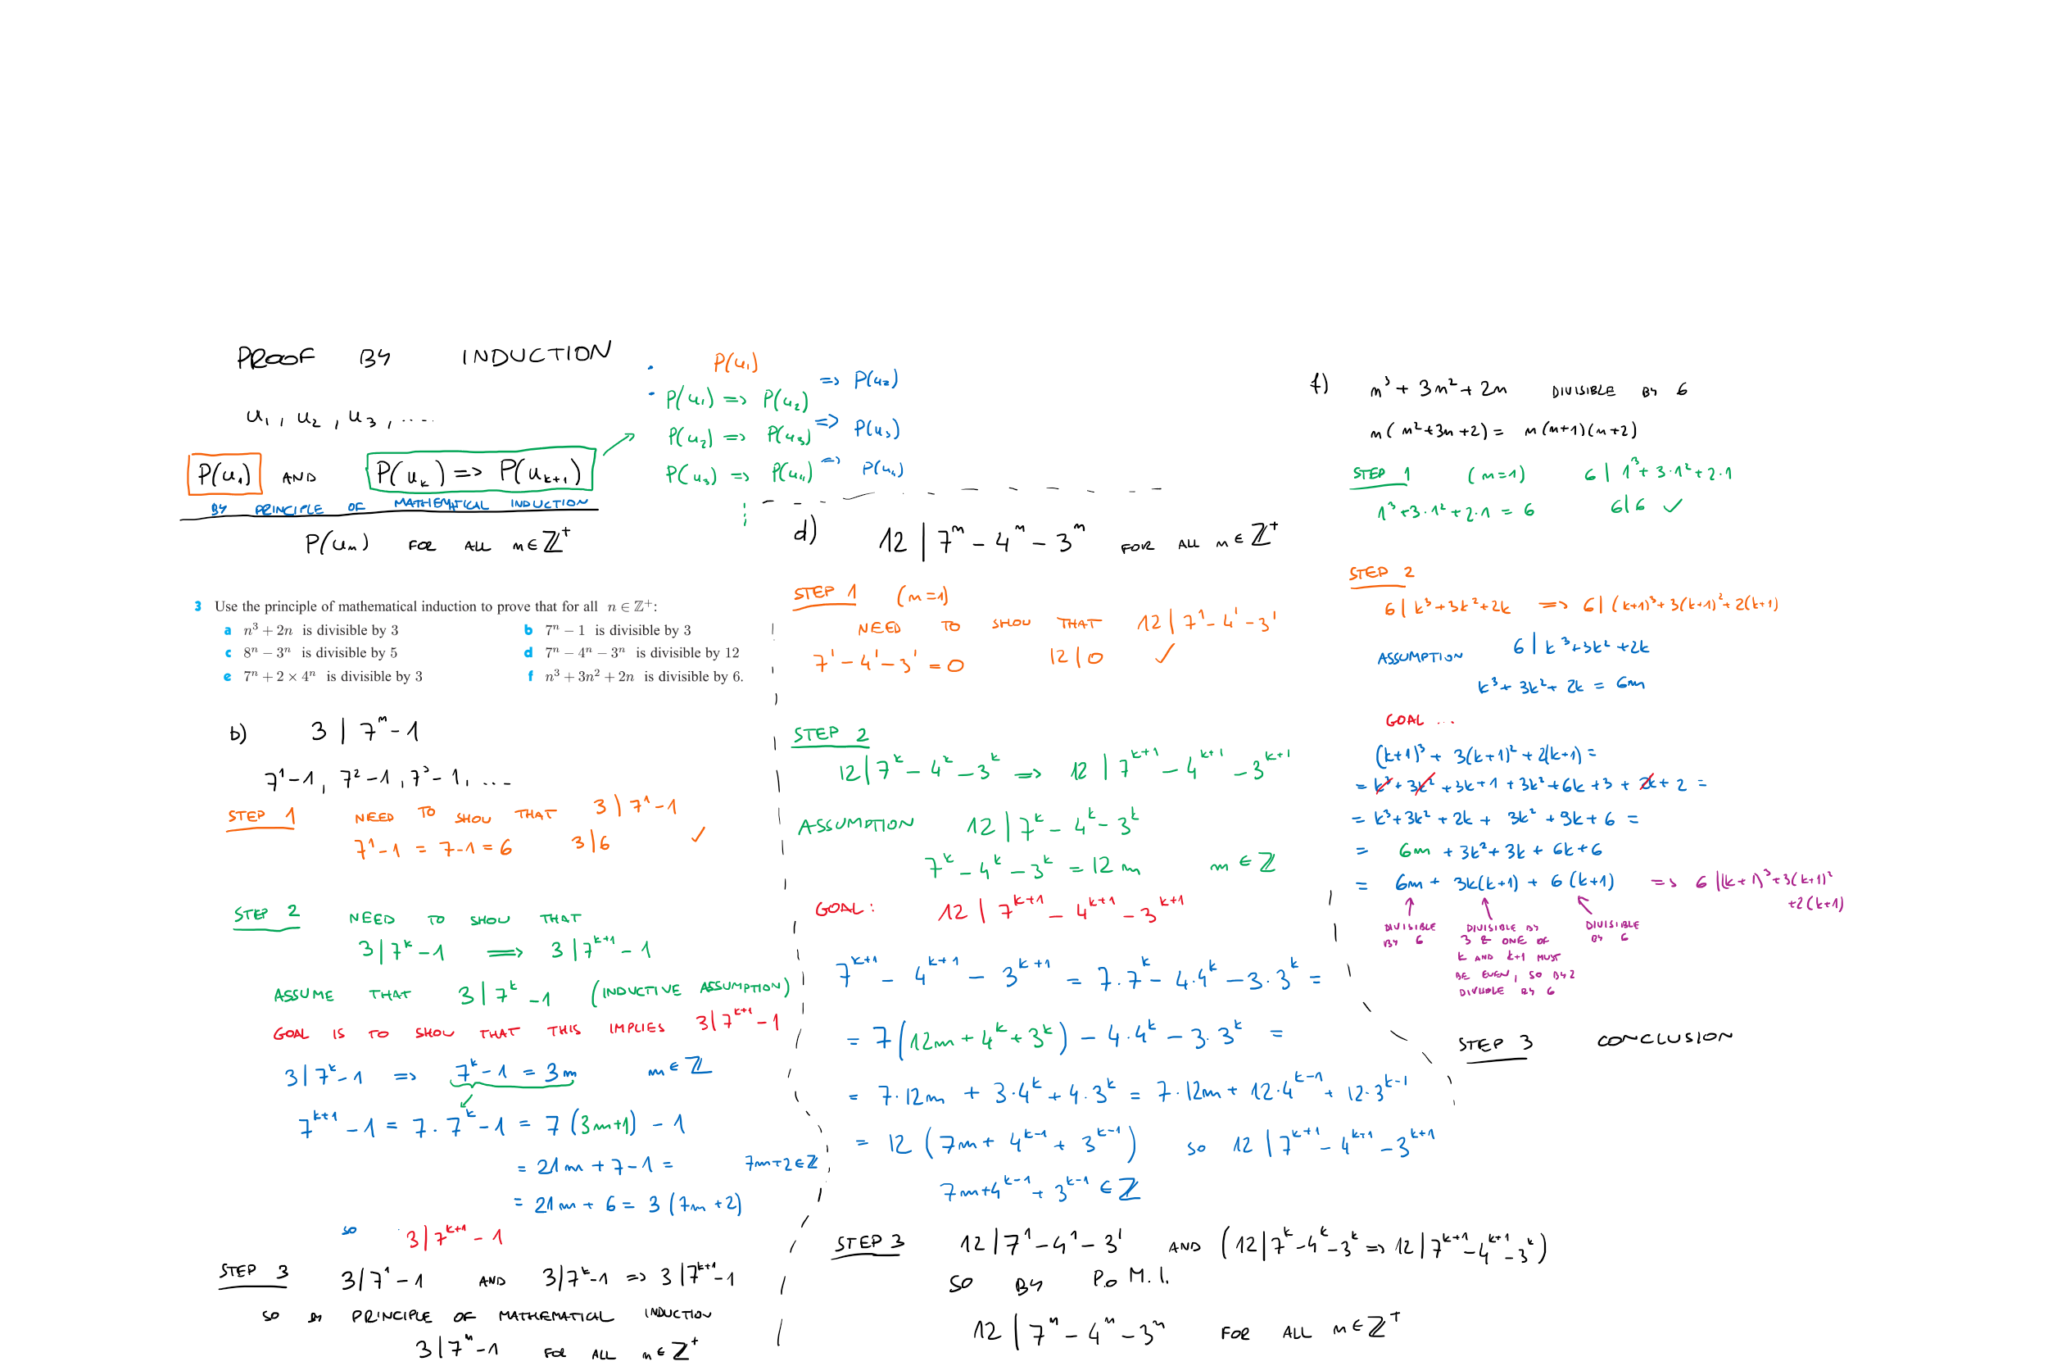 PROOF BY INDUCTION
u₁, u₂, u₃, ....
P(u₁) AND P(uₖ) => P(uₖ₊₁)
BY PRINCIPLE OF MATHEMATICAL INDUCTION
P(uₙ) FOR ALL n∈ℤ⁺
• P(u₁)
=> P(u₂)
• P(u₁) => P(u₂)
P(u₂) => P(u₃) => P(u₃)
P(u₃) => P(u₄) => P(u₄)
3 Use the principle of mathematical induction to prove that for all n ∈ ℤ⁺:
a n³ + 2n is divisible by 3
b 7ⁿ − 1 is divisible by 3
c 8ⁿ − 3ⁿ is divisible by 5
d 7ⁿ − 4ⁿ − 3ⁿ is divisible by 12
e 7ⁿ + 2 × 4ⁿ is divisible by 3
f n³ + 3n² + 2n is divisible by 6.
b) 3 | 7ⁿ - 1
7¹-1, 7²-1, 7³-1, ...
STEP 1 NEED TO SHOW THAT 3 | 7¹-1
7¹-1 = 7-1 = 6 3|6 ✓
STEP 2 NEED TO SHOW THAT
3|7ᵏ-1 => 3|7ᵏ⁺¹-1
ASSUME THAT 3|7ᵏ-1 (INDUCTIVE ASSUMPTION)
GOAL IS TO SHOW THAT THIS IMPLIES 3|7ᵏ⁺¹-1
3|7ᵏ-1 => 7ᵏ-1 = 3m m∈ℤ
7ᵏ⁺¹-1 = 7·7ᵏ-1 = 7(3m+1) - 1
= 21m + 7-1 = 7m+2∈ℤ
= 21m + 6 = 3(7m+2)
so 3|7ᵏ⁺¹-1
STEP 3 3|7¹-1 AND 3|7ᵏ-1 => 3|7ᵏ⁺¹-1
SO BY PRINCIPLE OF MATHEMATICAL INDUCTION
3|7ⁿ-1 FOR ALL n∈ℤ⁺
d) 12 | 7ⁿ - 4ⁿ - 3ⁿ FOR ALL n∈ℤ⁺
STEP 1 (n=1)
NEED TO SHOW THAT 12|7¹-4¹-3¹
7¹-4¹-3¹ = 0 12|0 ✓
STEP 2
12|7ᵏ-4ᵏ-3ᵏ => 12|7ᵏ⁺¹-4ᵏ⁺¹-3ᵏ⁺¹
ASSUMPTION 12|7ᵏ-4ᵏ-3ᵏ
7ᵏ-4ᵏ-3ᵏ = 12m m∈ℤ
GOAL: 12|7ᵏ⁺¹-4ᵏ⁺¹-3ᵏ⁺¹
7ᵏ⁺¹-4ᵏ⁺¹-3ᵏ⁺¹ = 7·7ᵏ-4·4ᵏ-3·3ᵏ =
= 7(12m+4ᵏ+3ᵏ) - 4·4ᵏ - 3·3ᵏ =
= 7·12m + 3·4ᵏ + 4·3ᵏ = 7·12m + 12·4ᵏ⁻¹ + 12·3ᵏ⁻¹
= 12(7m + 4ᵏ⁻¹ + 3ᵏ⁻¹) so 12|7ᵏ⁺¹-4ᵏ⁺¹-3ᵏ⁺¹
7m+4ᵏ⁻¹+3ᵏ⁻¹∈ℤ
STEP 3 12|7¹-4¹-3¹ AND (12|7ᵏ-4ᵏ-3ᵏ => 12|7ᵏ⁺¹-4ᵏ⁺¹-3ᵏ)
SO BY P.o M.I.
12|7ⁿ-4ⁿ-3ⁿ FOR ALL n∈ℤ⁺
f) n³ + 3n² + 2n DIVISIBLE BY 6
n(n²+3n+2) = n(n+1)(n+2)
STEP 1 (n=1) 6 | 1³+3·1²+2·1
1³+3·1²+2·1 = 6 6|6 ✓
STEP 2
6|k³+3k²+2k => 6|(k+1)³+3(k+1)²+2(k+1)
ASSUMPTION 6|k³+3k²+2k
k³+3k²+2k = 6m
GOAL ...
(k+1)³ + 3(k+1)² + 2(k+1) =
= k³+3k²+3k+1+3k²+6k+3+2k+2 =
= k³+3k²+2k + 3k²+9k+6 =
= 6m + 3k²+3k+6k+6
= 6m + 3k(k+1) + 6(k+1) => 6|(k+1)³+3(k+1)²
+2(k+1)
DIVISIBLE BY 6
DIVISIBLE BY
3 & ONE OF
k AND k+1 MUST
BE EVEN, SO BY 2
DIVISIBLE BY 6
DIVISIBLE BY 6
STEP 3 CONCLUSION